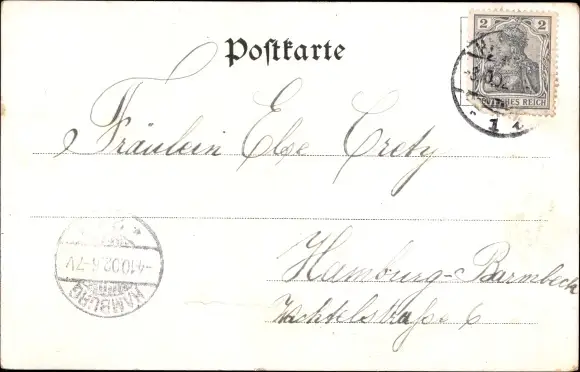 Postkarte
2 2
DEUTSCHES REICH
1
Fräulein Else Crety
Hamburg-Barmbeck
Wachtelstraße 6
HAMBURG
-4.10.02.6-7V